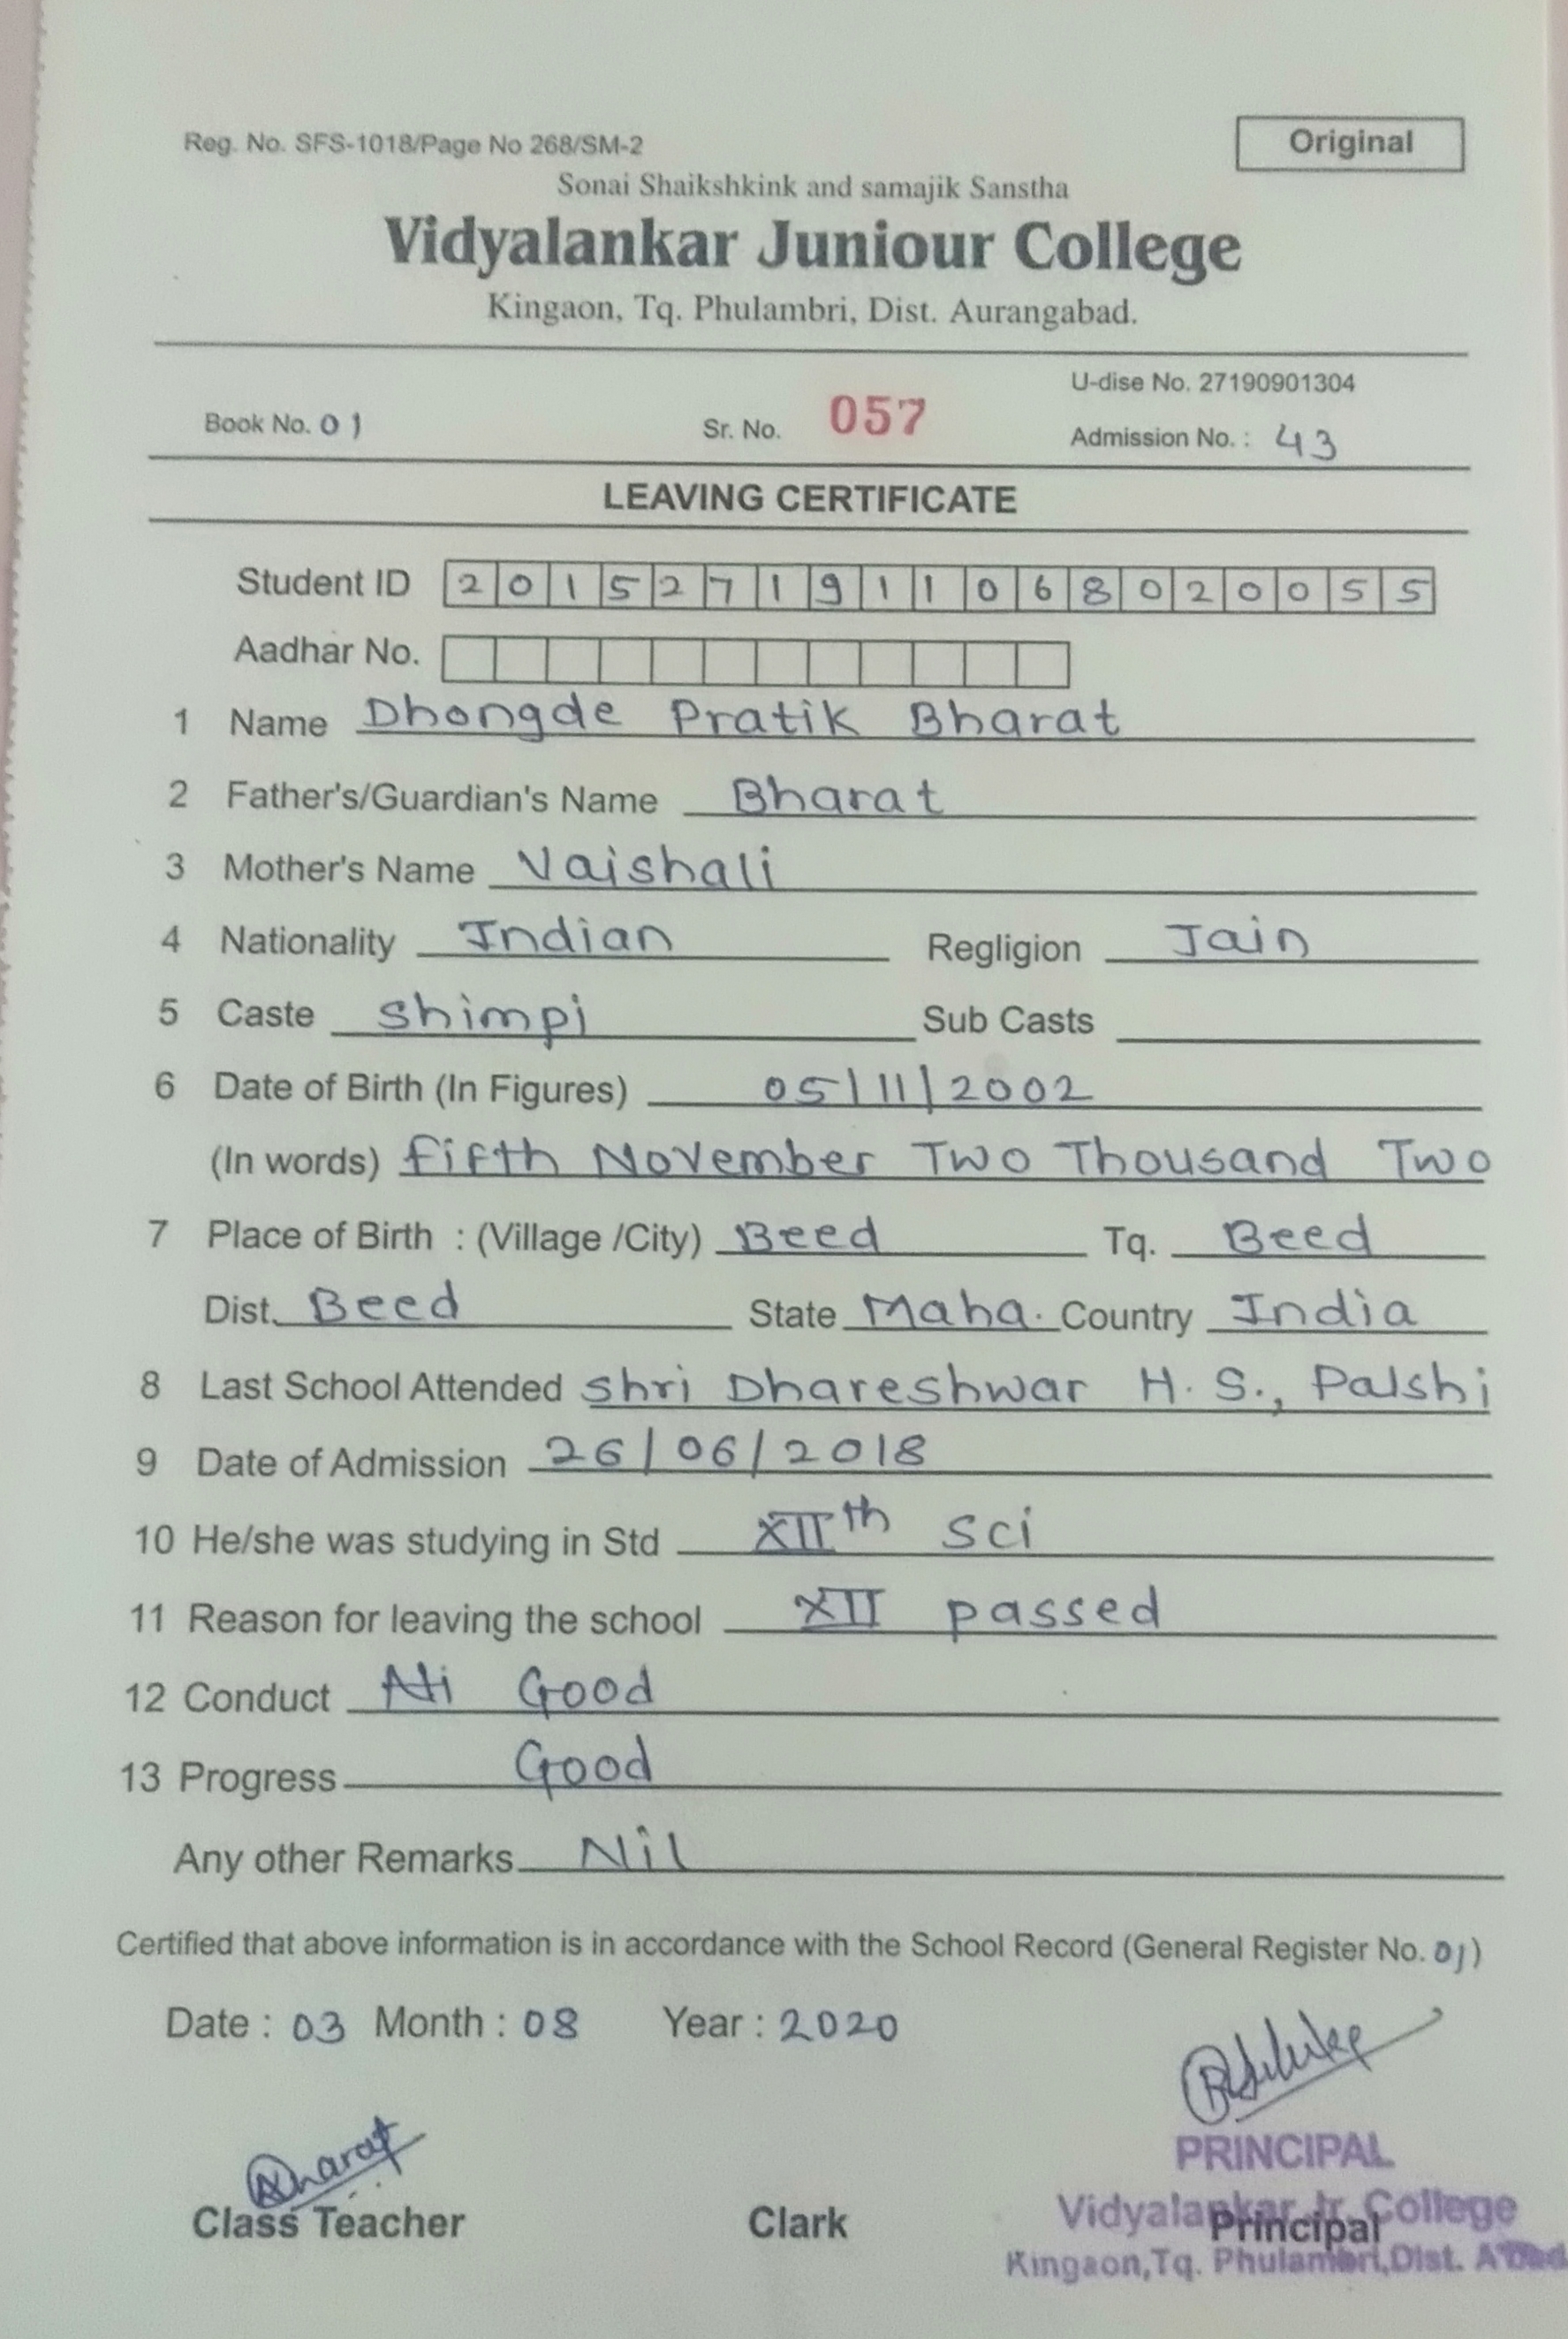 Reg. No. SFS-1018/Page No 268/SM-2
Original
Sonai Shaikshkink and samajik Sanstha
Vidyalankar Juniour College
Kingaon, Tq. Phulambri, Dist. Aurangabad.
U-dise No. 27190901304
Book No. 01 Sr. No. 057 Admission No. : 43
LEAVING CERTIFICATE
Student ID 2015271911068020055
Aadhar No.
1 Name Dhongde Pratik Bharat
2 Father's/Guardian's Name Bharat
3 Mother's Name Vaishali
4 Nationality Indian Regligion Jain
5 Caste Shimpi Sub Casts
6 Date of Birth (In Figures) 05/11/2002
(In words) Fifth November Two Thousand Two
7 Place of Birth : (Village /City) Beed Tq. Beed
Dist. Beed State Maha. Country India
8 Last School Attended Shri Dhareshwar H. S., Palshi
9 Date of Admission 26/06/2018
10 He/she was studying in Std XIIth Sci
11 Reason for leaving the school XII passed
12 Conduct Good
13 Progress Good
Any other Remarks Nil
Certified that above information is in accordance with the School Record (General Register No. 01)
Date : 03 Month : 08 Year : 2020
PRINCIPAL
Vidyalankar Jr. College
Class Teacher Clark Principal
Kingaon,Tq. Phulambri,Dist.